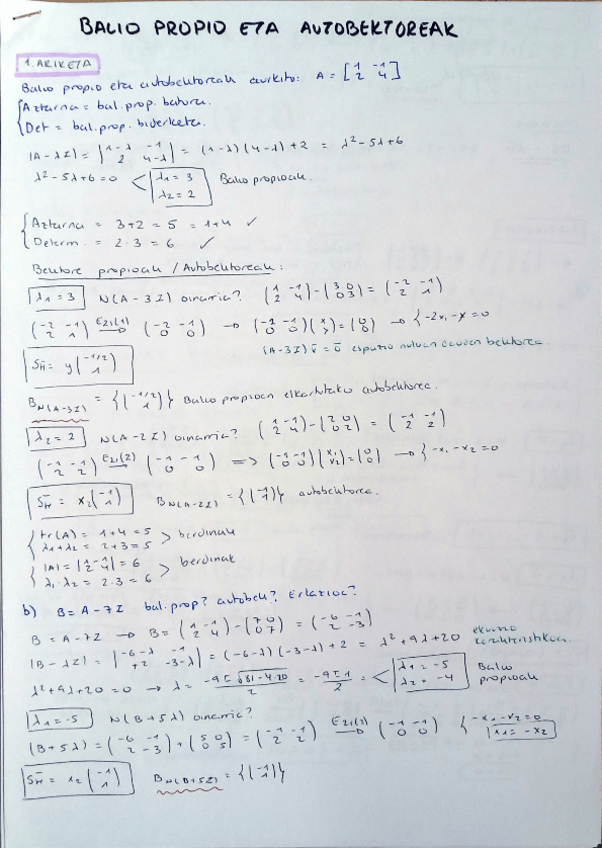 BALIO PROPIO ETA AUTOBEKTOREAK
1. ARIKETA
Balio propio eta autobektoreak aurkitu: A = [1 -1; 2 4]
{Aztarna = bal. prop. batura.
{Det = bal. prop. biderketa.
|A - λI| = |1-λ -1; 2 4-λ| = (1-λ)(4-λ)+2 = λ² - 5λ + 6
λ² - 5λ + 6 = 0 < λ1 = 3 λ2 = 2 Balio propioak
{Aztarna = 3+2 = 5 = 1+4 ✓
{Determ. = 2·3 = 6 ✓
Bektore propioak / Autobektoreak:
λ1 = 3 N(A-3I) oinarria? (1 -1; 2 4) - (3 0; 0 3) = (-2 -1; 2 1)
(-2 -1; 2 1) E21(1) → (-2 -1; 0 0) → (-2 -1; 0 0)(x; y) = (0; 0) → {-2x - y = 0
SH = y(-1/2; 1) (A-3I) v̄ = ō espazio nuluan dauden bektorea.
B N(A-3I) = {(-1/2; 1)} Balio propioari elkartutako autobektorea.
λ2 = 2 N(A-2I) oinarria? (1 -1; 2 4) - (2 0; 0 2) = (-1 -1; 2 2)
(-1 -1; 2 2) E21(2) → (-1 -1; 0 0) => (-1 -1; 0 0)(x1; x2) = (0; 0) → {-x1 - x2 = 0
SH = x2(-1; 1) B N(A-2I) = {(-1; 1)} autobektorea.
{tr(A) = 1+4 = 5
{λ1+λ2 = 2+3 = 5 > berdinak
{|A| = |1 -1; 2 4| = 6
{λ1·λ2 = 2·3 = 6 > berdinak
b) B = A - 7I bal. prop? autobek? Erlazioa?
B = A - 7I → B = (1 -1; 2 4) - (7 0; 0 7) = (-6 -1; 2 -3)
|B - λI| = |-6-λ -1; +2 -3-λ| = (-6-λ)(-3-λ) + 2 = λ² + 9λ + 20 ekuazio karakteristikoa.
λ² + 9λ + 20 = 0 → λ = (-9 ± √(81 - 4·20))/2 = (-9 ± 1)/2 = < λ1 = -5 λ2 = -4 Balio propioak
λ1 = -5 N(B+5λ) oinarria?
(B+5λ) = (-6 -1; 2 -3) + (5 0; 0 5) = (-1 -1; 2 2) E21(2) → (-1 -1; 0 0) {-x1 - x2 = 0 x1 = -x2
SH = x2(-1; 1) B N(B+5I) = {(-1; 1)}